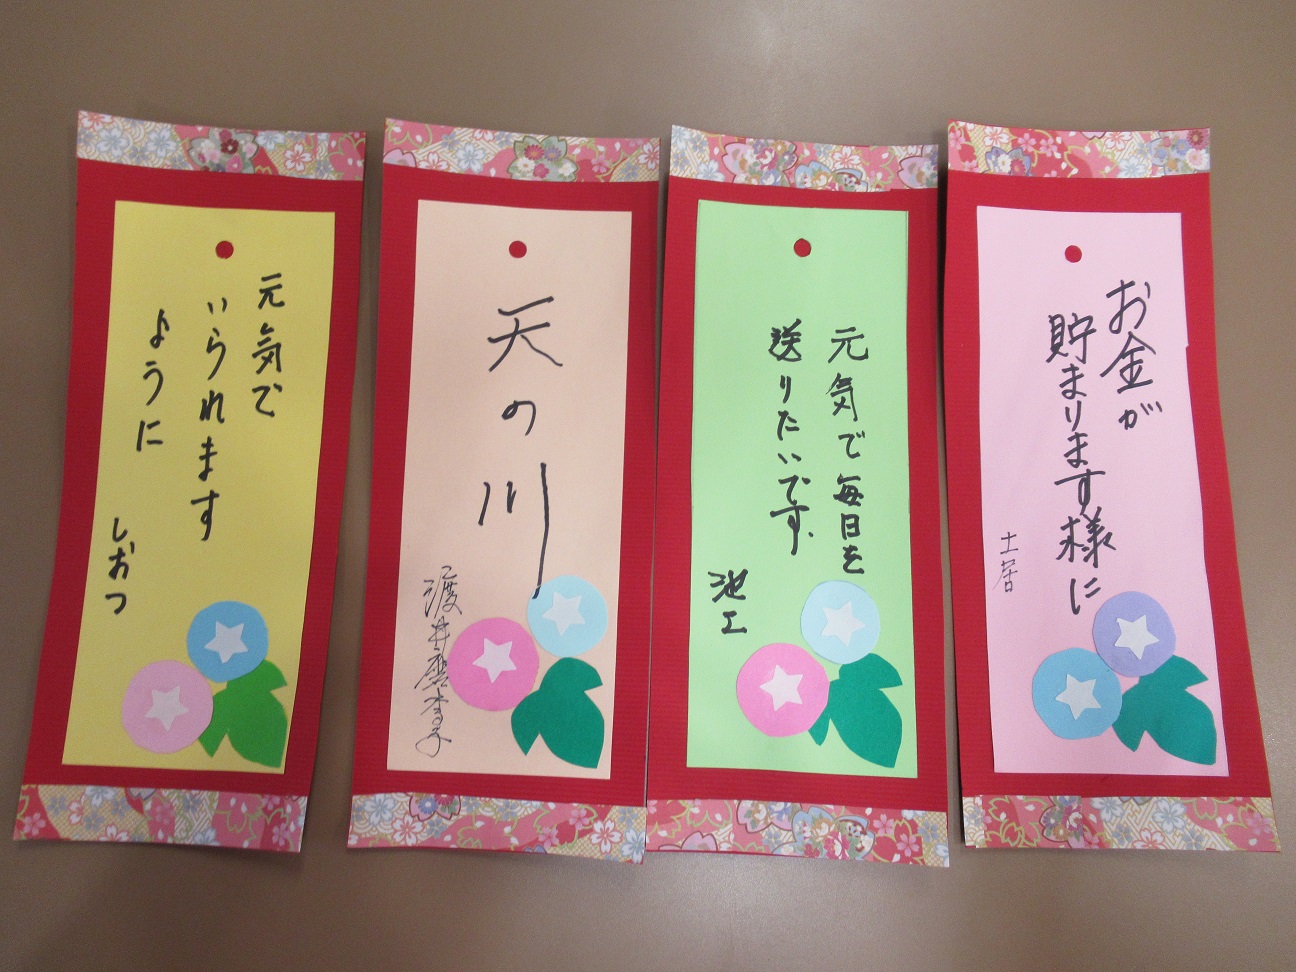 元気で
いられます
ように
しおつ
天の川
渡井磨李子
元気で毎日を
送りたいです.
池工
お金が
貯まります様に
土居